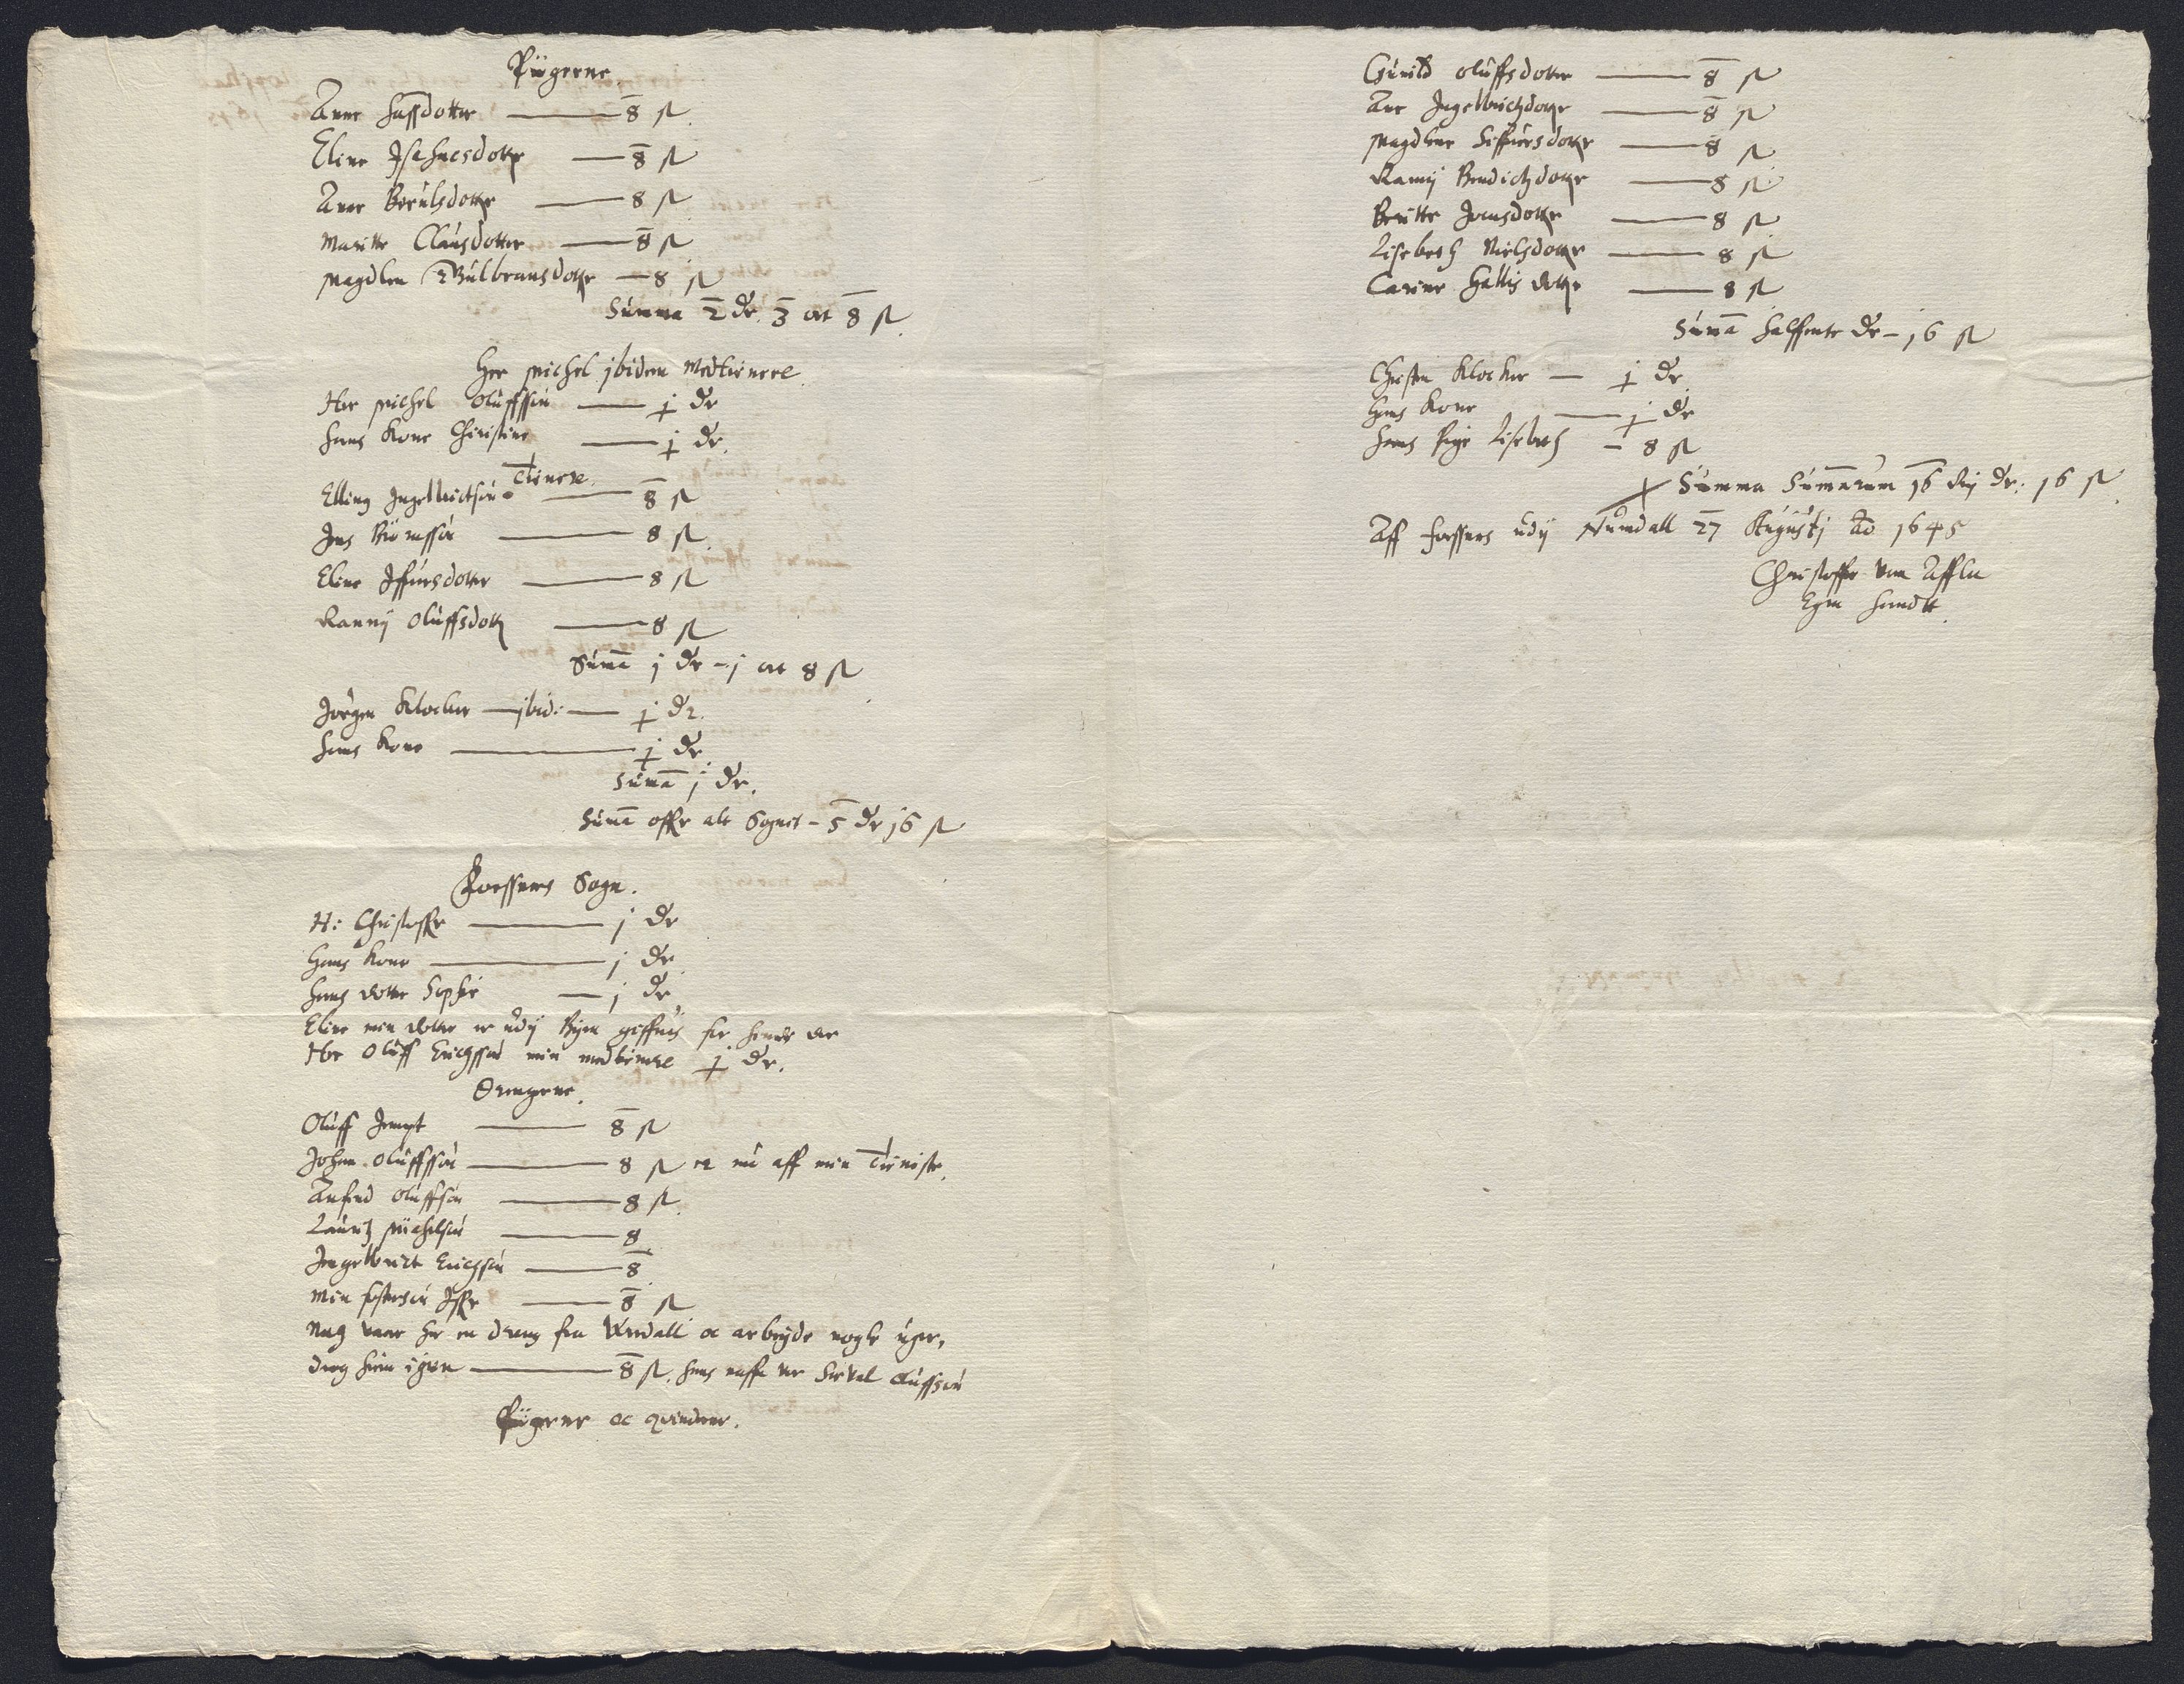 Piigerne
Anne Hassdotter — 8 ß
Eline Ifsehuesdotter — 8 ß
Anne Berulsdotter — 8 ß
Maritte Clausdotter — 8 ß
Magdlen Gulbransdotter — 8 ß
Summa 2 dr. 3 ort 8 ß
Her Michel ibidem Medtienere
Her Michel Oluffsøn — ½ dr
Hans Kone Christine — ½ dr.
Tienere
Elling Ingelbrictsøn — 8 ß
Jens Biørnssøn — 8 ß
Eline Iffuersdotter — 8 ß
Ranny Oluffsdotter — 8 ß
Suma j dr – j ort 8 ß
Jørgen Klocker — ibid: — ½ dr.
Hans Kone — ½ dr
Suma j dr.
Suma offr alt Sognet – 5 dr 16 ß
Foessnes Sogn.
H: Christoffer — j dr
Hans Kone — j dr
Hans dotter Sophie — j dr
Eline min dotter er udj Byen giffues for hende der
Her Oluff Erichssøn min medtienere ½ dr.
Drengene.
Oluff Jempt — 8 ß
Johan Oluffssøn — 8 ß er nu aff min Tieniste.
Anfind Oluffsøn — 8 ß
Lauritz Michelsøn — 8
Ingelbrict Erichsøn — 8
Min fostersøn Iffer — 8 ß
Nock vaar her en dreng fra Verdall oc arbeyde nogle uger,
drog hiem igien — 8 ß. hans naffn er Sieval Oluffsøn
Piigerne oc qvinderne.
Gunild Oluffsdotter — 8 ß
Ane Ingelbrictzdotter — 8 ß
Magdlene Siffuersdotter — 8 ß
Ranny Bendictzdotter — 8 ß
Beritte Joensdotter — 8 ß
Lisebeth Nielsdotter — 8 ß
Carine Hallis dotter — 8 ß
Suma halffemte dr – 16 ß
Christen Klocker — ½ dr.
Hans Kone — ½ dr
Hans Pige Lisebeth — 8 ß
Summa Summarum 16 Rij dr: 16 ß
Aff Foessnes udj Numdall 27 Augustj Ao 1645
Christoffer von Affln
Egen Handtt.